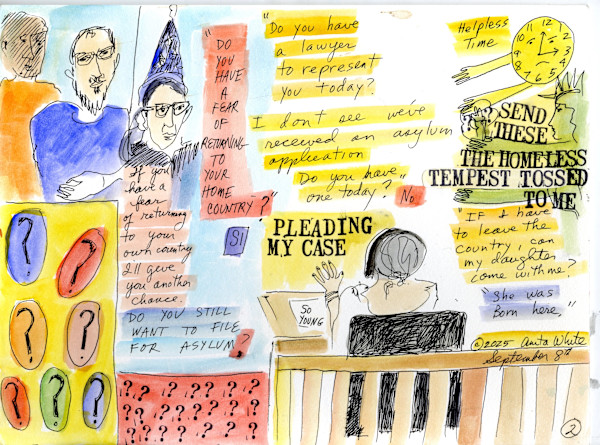 "DO
YOU
HAVE
A
FEAR
OF
RETURNING
TO
YOUR
HOME
COUNTRY?"
SI
"Do you have
a lawyer
to represent
you today?
I don't see we've
received an asylum
application
Do you have
one today?"
No
Helpless
Time
12
1
2
3
4
5
6
7
8
9
10
11
SEND
THESE
THE HOMELESS
TEMPEST TOSSED
TO ME
If you
have a
fear
of returning
to your
own country
I'll give
you another
chance.
DO YOU STILL
WANT TO FILE
FOR ASYLUM?
PLEADING
MY CASE
SO
YOUNG
"IF I have
to leave the
country, can
my daughter
come with me?
"She was
Born here"
©2025 Anita White
September 8th
? ?
? ?
? ? ?
2